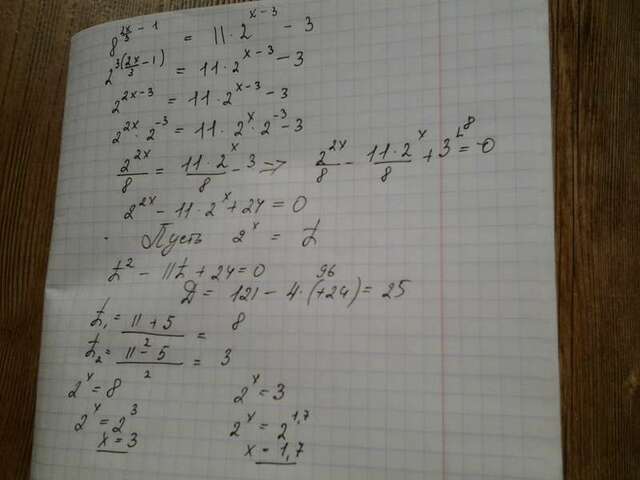 8^{\frac{2x}{3} - 1} = 11 · 2^{x-3} - 3
2^{3(\frac{2x}{3} - 1)} = 11 · 2^{x-3} - 3
2^{2x-3} = 11 · 2^{x-3} - 3
2^{2x} · 2^{-3} = 11 · 2^{x} · 2^{-3} - 3
\frac{2^{2x}}{8} = \frac{11 · 2^{x}}{8} - 3 => \frac{2^{2x}}{8} - \frac{11 · 2^{x}}{8} + 3^{⌊8} = 0
2^{2x} - 11 · 2^{x} + 24 = 0
Пусть 2^{x} = t
t^{2} - 11t + 24 = 0
96
D = 121 - 4 · (+24) = 25
t_1 = \frac{11 + 5}{2} = 8
t_2 = \frac{11 - 5}{2} = 3
2^{x} = 8 2^{x} = 3
2^{x} = 2^{3} 2^{x} = 2^{1,7}
x = 3 x = 1,7